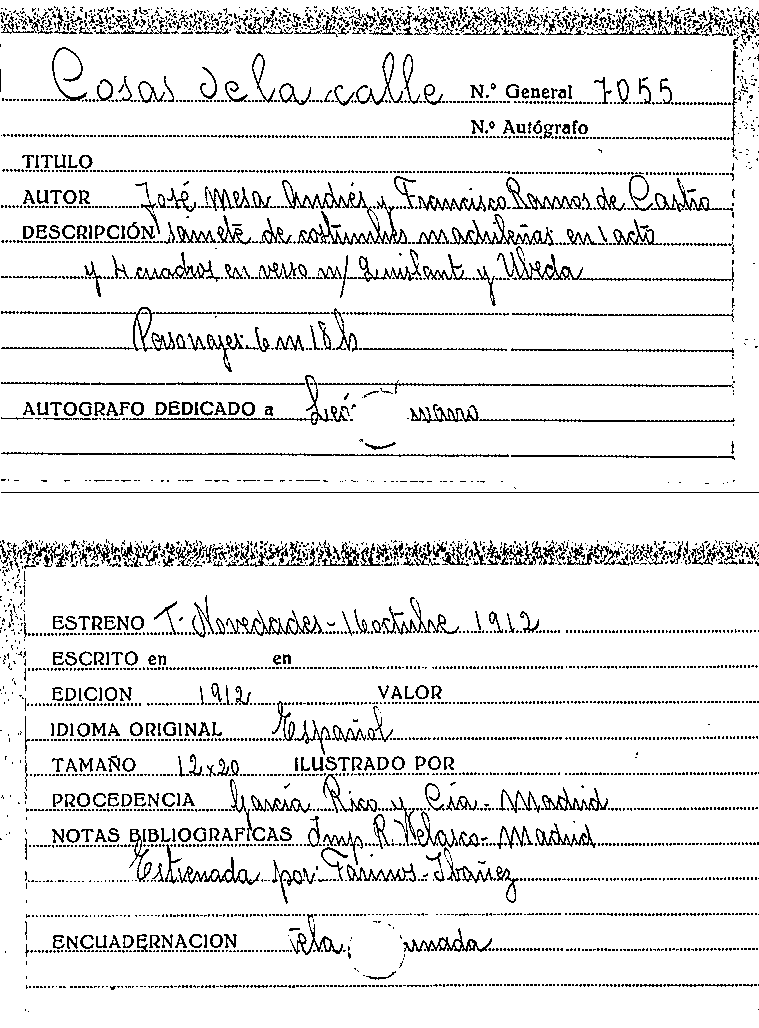 Cosas de la calle N.º General 7055
N.º Autógrafo
TITULO
AUTOR José Mesa Andrés y Francisco Ramos de Castro
DESCRIPCIÓN sainete de costumbres madrileñas en 1 acto
y 4 cuadros, en verso m/ Quislant y Ubeda
Personajes: 6 m 18 h
AUTOGRAFO DEDICADO a
ESTRENO T. Novedades - 16 octubre 1912
ESCRITO en en
EDICION 1912 VALOR
IDIOMA ORIGINAL Español
TAMAÑO 12x20 ILUSTRADO POR
PROCEDENCIA García Rico y Cía - Madrid
NOTAS BIBLIOGRAFICAS Imp. R. Velasco - Madrid
Estrenada por: Farinos - Ibañez
ENCUADERNACION Tela,